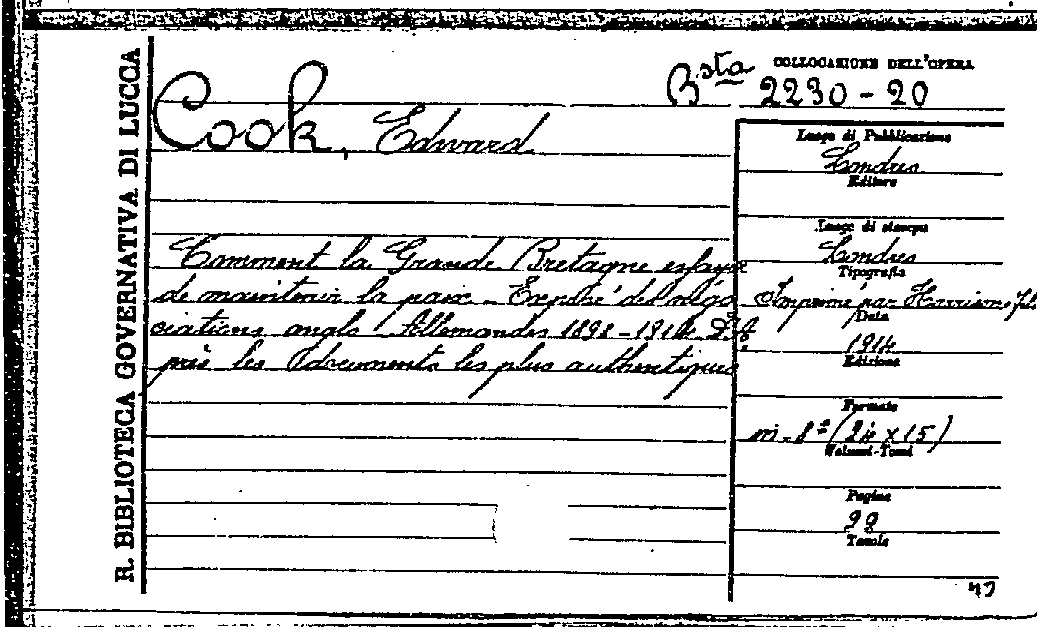 R. BIBLIOTECA GOVERNATIVA DI LUCCA
COLLOCAZIONE DELL'OPERA
Bsta 2230-20
Cook, Edward
Comment la Grande Bretagne essaye
de maintenir la paix - Exposé des négo
ciations anglo Allemandes 1898-1914 D'A
près les documents les plus authentiques
Luogo di Pubblicazione
Londres
Editore
Luogo di stampa
Londres
Tipografia
Imprimé par Harrison, fils
Data
1914
Edizione
Formato
in-8º (24 x 15)
Volumi-Tomi
Pagine
Tavole